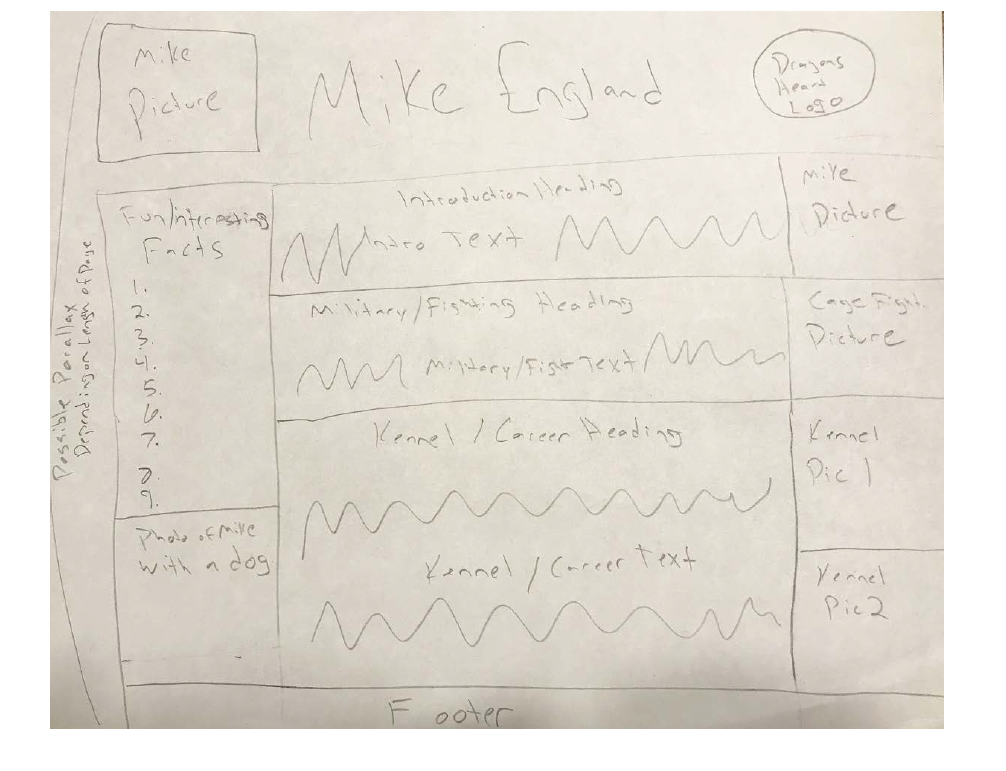 Mike
Picture
Mike England
Dragons
Heart
Logo
Possible Parallax
Depending on Length of Page
Fun/interesting
Facts
1.
2.
3.
4.
5.
6.
7.
8.
9.
Photo of Mike
with a dog
Introduction Heading
Intro Text
Military/Fighting Heading
Military/Fight Text
Kennel / Career Heading
Kennel / Career Text
Mike
Picture
Cage Fight
Picture
Kennel
Pic 1
Kennel
Pic 2
Footer